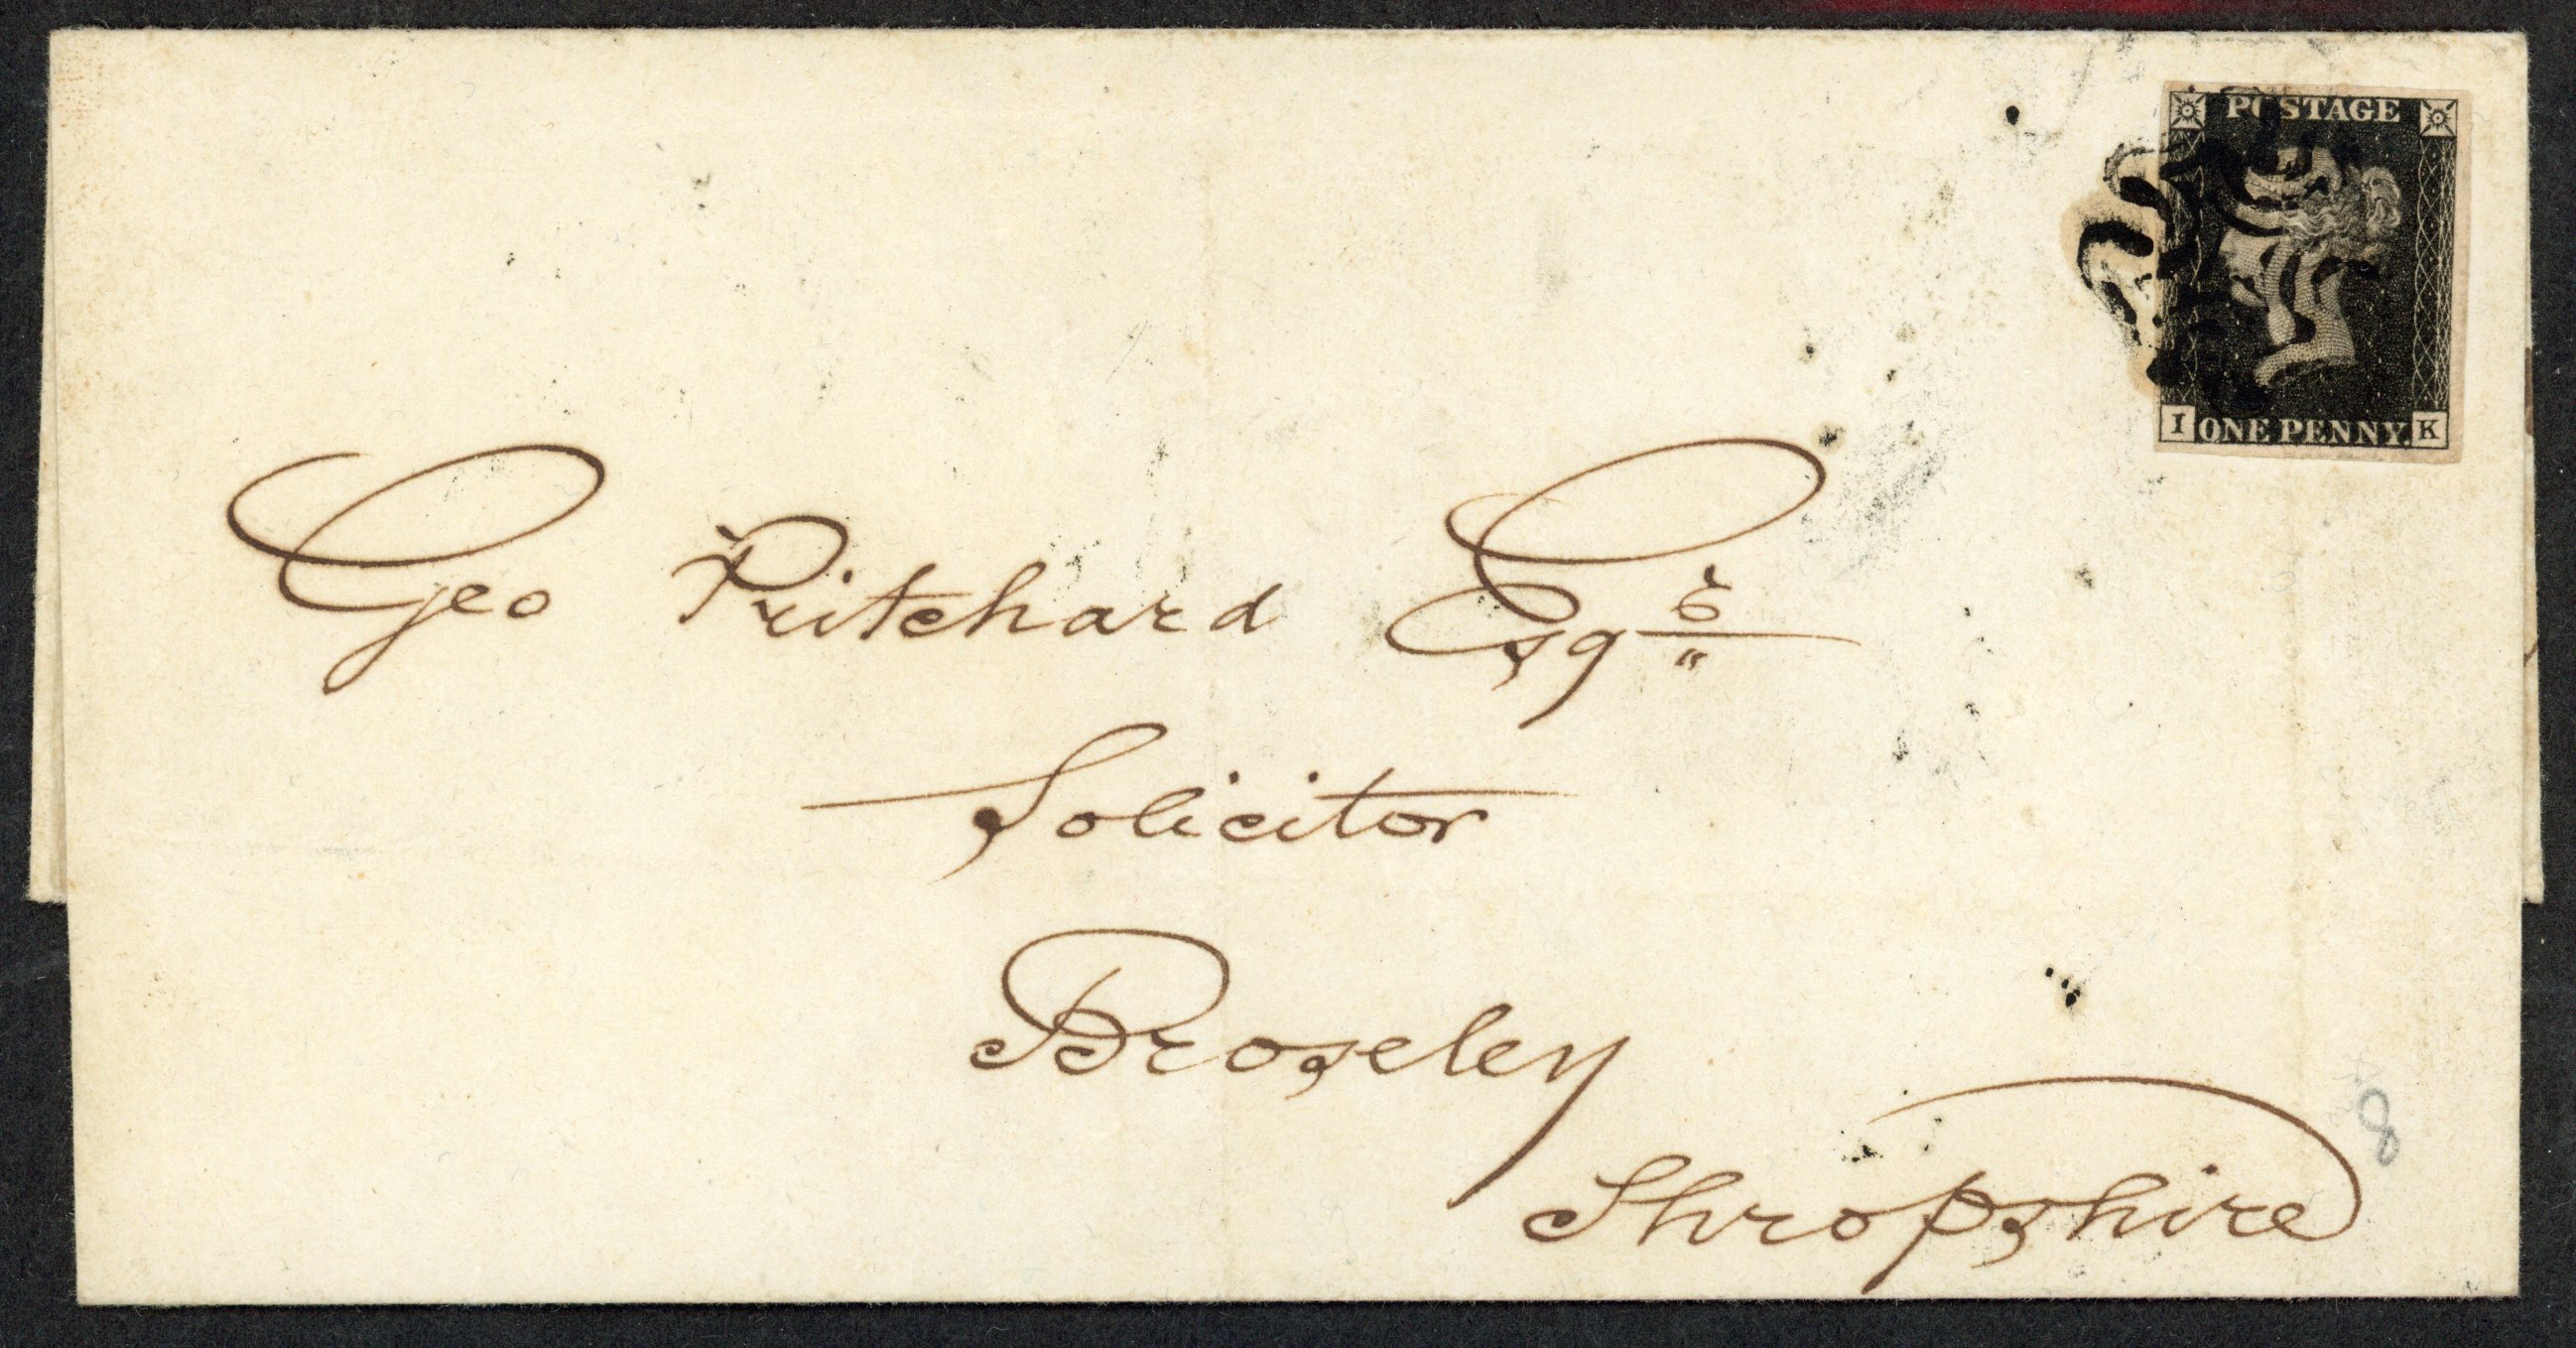 POSTAGE
I ONE PENNY K
Geo Pritchard Esqre
Solicitor
Broseley
Shropshire
8